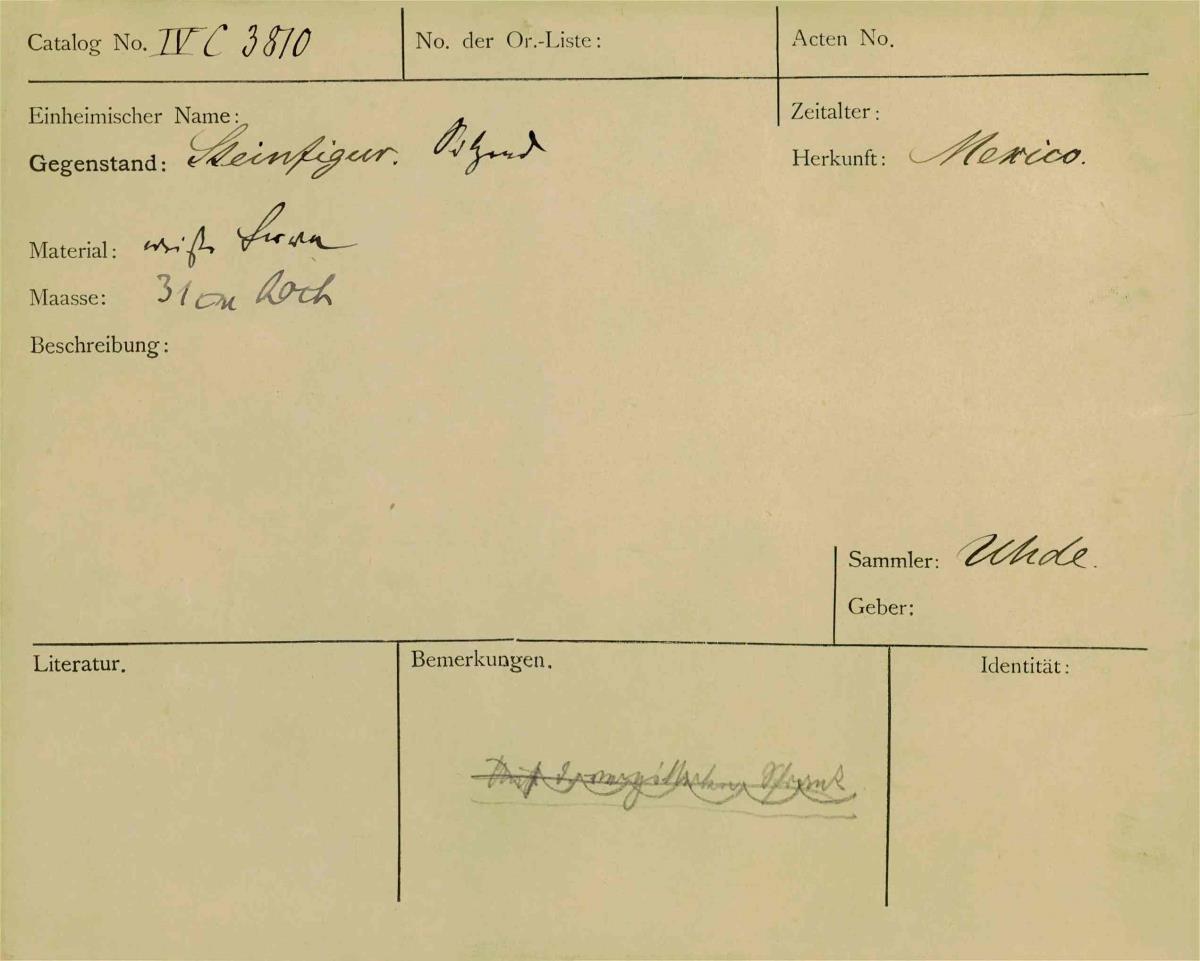 Catalog No. IV C 3810
No. der Or.-Liste:
Acten No.
Einheimischer Name:
Gegenstand: Steinfigur. Sitzend
Zeitalter:
Herkunft: Mexico.
Material: weiße Lava
Maasse: 31 cm hoch
Beschreibung:
Sammler: Uhde.
Geber:
Literatur.
Bemerkungen.
vergitterten Schrank
Identität: